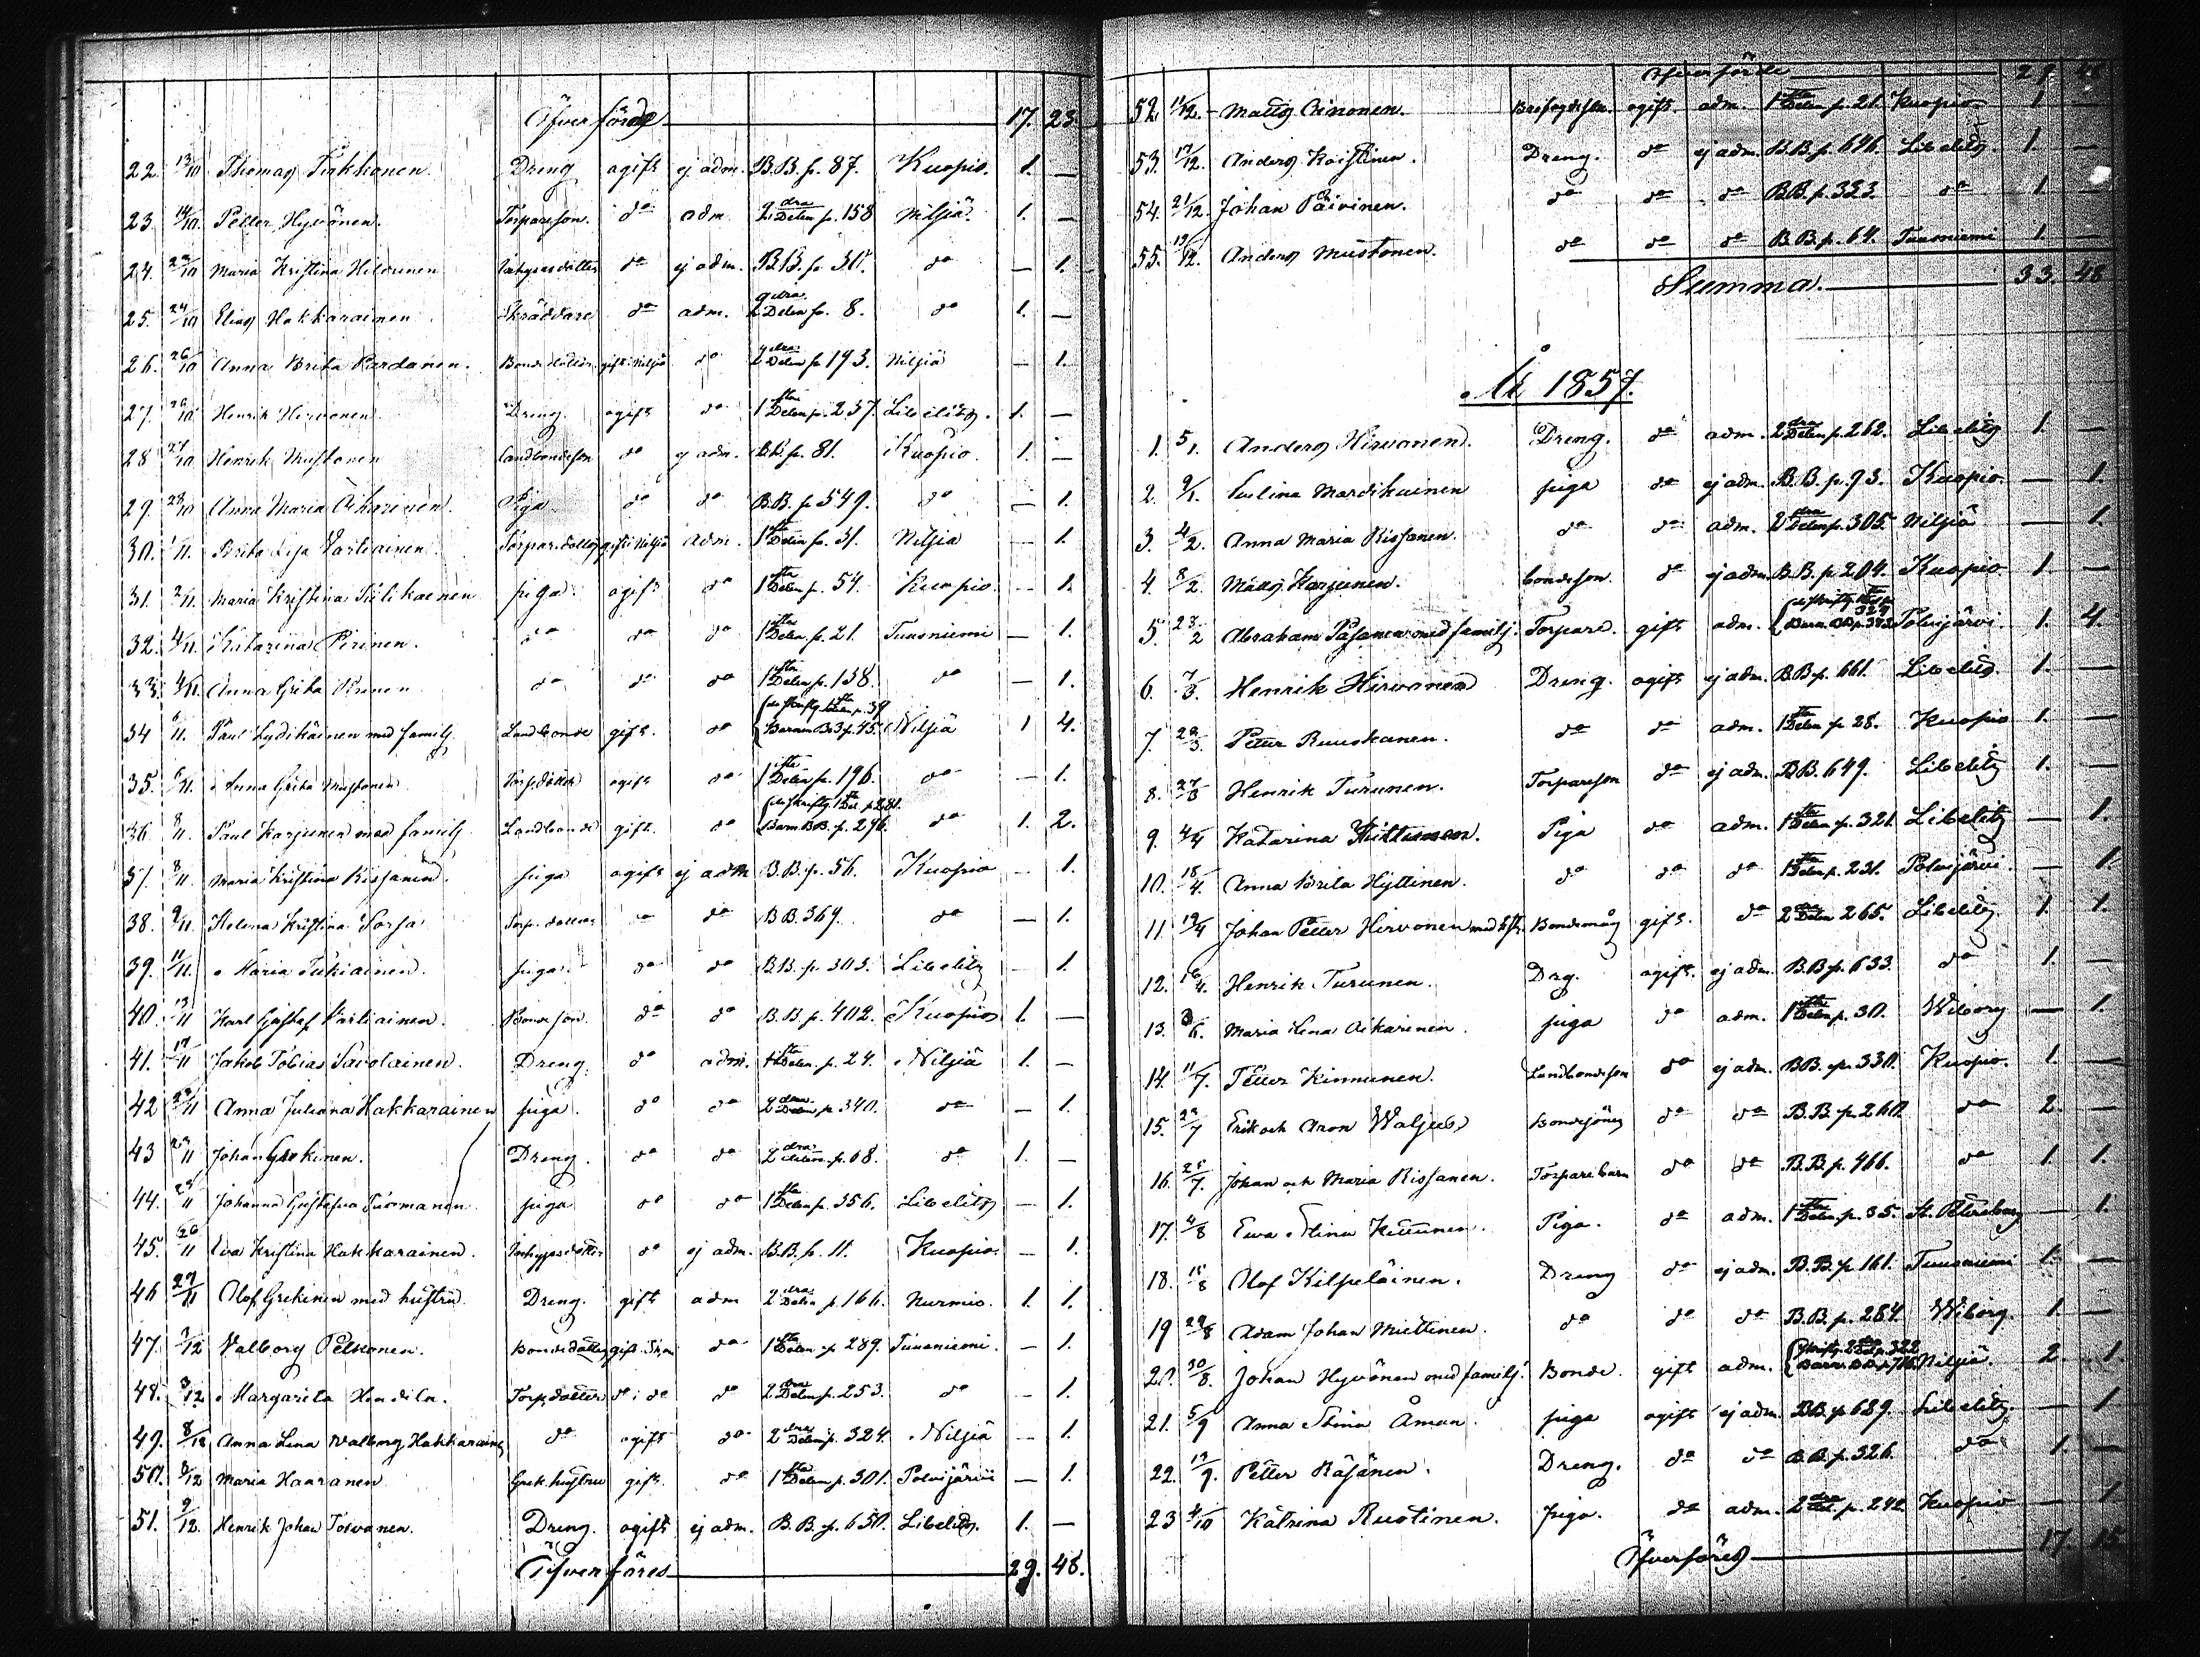 Öfverförde 17. 23.
22. 13/10 Thomas Tirkkonen. Dreng ogift ej adm. B.B. p. 87. Kuopio. 1. —
23. 14/10. Petter Hyvönen. Torpareson. do adm. 2dra Delen p. 158 Nilsiä. 1. —
24. 22/10 Maria Kristina Hilounen Inhysesdotter do ej adm. B.B. p. 30. do — 1.
25. 24/10 Elias Hakkarainen. Skräddare do adm. 2dra Delen p. 8. do 1. —
26. 26/10 Anna Brita Pardanen. Bondedotter gift i Nilsiä do 2dra Delen p. 193. Nilsiä — 1.
27. 26/10 Henrik Hirvonen. Dreng. ogift do 1sta Delen p. 237. Libelitz. 1. —
28 27/10 Henrik Mustonen Landbondeson do ej adm. B.B. p. 81. Kuopio. 1. —
29. 28/10 Anna Maria Aikarinen. Piga. do do B.B. p. 549. do — 1.
30. 1/11. Brita Lisa Vartiainen. Torpar. dotter gift i Nilsiä adm. 1sta Delen p. 31. Nilsiä — 1.
31. 2/11. Maria Kristina Tiilikainen piga ogift do 1sta Delen p. 54. Kuopio. — 1.
32. 4/11. Katarina Pirinen. do do do 1sta Delen p. 21. Tuusniemi — 1.
33. 4/11. Anna Greta do do do 1sta Delen p. 138. do — 1.
34 6/11. Paul Lydikäinen med familj. Landbonde gift. do 1sta Delen p. 39 Barnen B.B. p. 45. Nilsiä 1 4.
35. 6/11. Anna Greta Mustonen Torp. dotter ogift do 1sta Delen p. 196. do — 1.
36. 8/11. Paul Karjunen med familj Landbonde gift. do skriftg. 1sta Del. p. 281. Barn B.B. p. 296. do 1. 2.
37. 8/11. Maria Kristina Rissanen. piga ogift ej adm B.B. p. 56. Kuopio — 1.
38. 9/11. Helena Kristina Sorsa Torp. dotter do do B.B. 369. do — 1.
39. 11/11. Maria Tukiainen. piga. do do B.B. p. 303. Libelitz — 1.
40. 13/11 Karl Gustaf Vartiainen. Bondeson. do do B.B. p. 402. Kuopio 1. —
41. 17/11 Jakob Tobias Savolainen. Dreng. do adm. 1sta Delen p. 24. Nilsiä 1. —
42 22/11 Anna Juliana Hakkarainen piga. do do 2dra Delen p. 340. do — 1.
43 23/11 Johan Grekinen. Dreng. do do 2dra Delen p. 68. do 1. —
44. 23/11 Johanna Gustafva Tuomanen. piga do do 1sta Delen p. 356. Libelitz — 1.
45. 26/11 Eva Kristina Hakkarainen. Inhysesdotter do ej adm. B.B. p. 11. Kuopio. — 1.
46 27/11 Olof Grekinen med hustru. Dreng. gift adm 2dra Delen p. 166. Nurmis. 1. 1.
47. 3/12 Valborg Pelkonen. Bondedotter gift do 1sta Delen p. 289. Tuusniemi. — 1.
48. 3/12 Margareta Torp. dotter do i do do 2dra Delen p. 253. do — 1.
49. 8/12 Anna Lena Walborg Hakkarainen do ogift do 2dra Delen p. 324. Nilsiä — 1.
50. 8/12 Maria Haaranen hustru gift. do 1sta Delen p. 301. Polvijärvi — 1.
51. 9/12. Henrik Johan Toivanen. Dreng. ogift ej adm. B.B. p. 650. Libelitz. 1. —
Öfverföres 29. 48.
Öfverförde 29 48
52. 11/12. Matts Ainonen. ogift adm. 1sta Delen p. 21. Kuopio 1. —
53. 17/12. Anders Koistinen. Dreng. do ej adm. B.B. p. 696. Libelitz. 1. —
54. 21/12. Johan Päivinen. do do do B.B. p. 323. do 1. —
55. 19/12. Anders Mustonen. do do do B.B. p. 64. Tuusniemi 1. —
Summa. 33. 48
År 1857.
1. 5/1. Anders Hirvonen. Dreng. do adm. 2dra Delen p. 262. Libelitz 1. —
2. 9/1. Evelina Mardikainen piga do ej adm. B.B. p. 93. Kuopio. — 1.
3. 4/2. Anna Maria Rissanen. do do adm. 2dra Delen p. 305. Nilsiä — 1.
4. 8/2. Matts Karjunen. bondeson. do ej adm. B.B. p. 204. Kuopio 1. —
5. 23/2 Abraham Pasanen med familj. Torpare. gift adm. Barn. B.B. p. 372 Polvijärvi. 1. 4.
6. 7/3. Henrik Hirvonen Dreng. ogift ej adm. B.B. p. 661. Libelitz. 1. —
7. 22/3. Petter Ruuskanen. do do adm. 1sta Delen p. 28. Kuopio 1. —
8. 27/3 Henrik Turunen. Torpareson do ej adm. B.B. 649. Libelitz 1. —
9. 4/4 Katarina Kuittunen. Piga do adm. 1sta Delen p. 321. Libelitz — 1.
10. 18/4. Anna Brita Hyttinen. do do do 1sta Delen p. 231. Polvijärvi. — 1.
11. 19/4 Johan Petter Hirvonen med hst. Bondemåg gift. do 2dra Delen 265. Libelitz 1. 1.
12. 16/4. Henrik Turunen. Drg. ogift. ej adm. B.B. p. 633. do 1. —
13. 3/6. Maria Lena Aikarinen. piga do adm. 1sta Delen p. 30. Wiborg — 1.
14. 11/7. Petter Kinnunen. Landbondeson do ej adm. B.B. p. 330. Kuopio. 1. —
15. 22/7 Erik och Aron Waljus Bondesöner do do B.B. p. 260. do 2. —
16. 25/7. Johan och Maria Rissanen. Torparebarn do do B.B. p. 466. do 1. 1.
17. 4/8 Ewa Stina Kettunen. Piga. do adm. 1sta Delen p. 35. St. Petersburg — 1.
18. 15/8 Olof Kilpeläinen. Dreng do ej adm. B.B. p. 161. Tuusniemi 1. —
19 22/8 Adam Johan Miettinen. do do do B.B. p. 284. Wiborg. 1. —
20. 30/8. Johan Hyvönen med familj. Bonde. gift adm. Skriftg. 2dra Del. p. 322 Barn. B.B. p. 716. Nilsiä. 2. 1
21. 5/9 Anna Stina Åman. piga ogift ej adm. B.B. p. 689. Libelitz. — 1
22. 17/9. Petter Räsänen. Dreng. do do B.B. p. 326. do 1. —
23 4/10 Katrina Ruotinen. piga. do adm. 2dra Del. p. 242 Kuopio — 1
Öfverföres 17. 15.